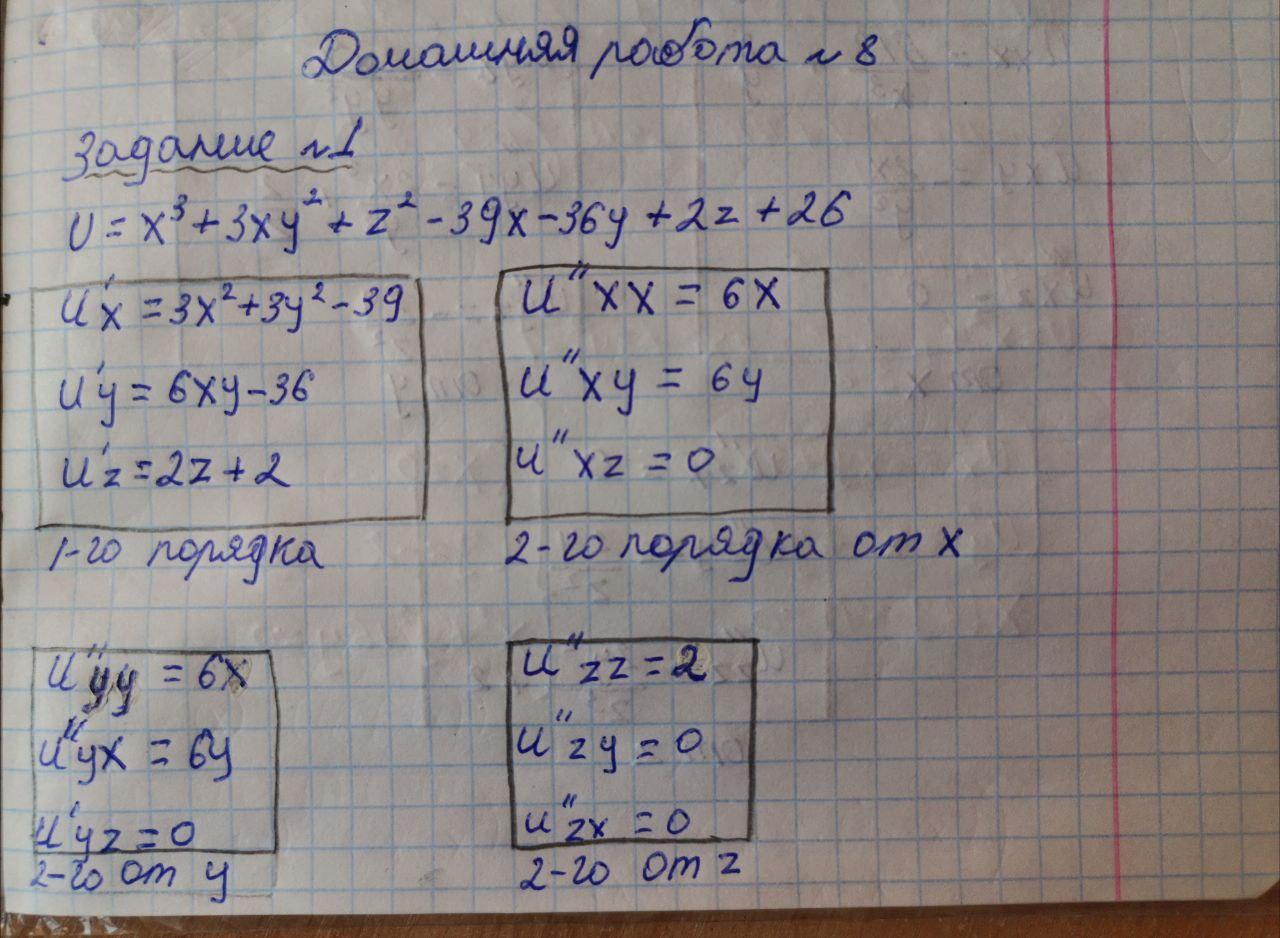 Домашняя работа №8
Задание №1
U = x³ + 3xy² + z² - 39x - 36y + 2z + 26
U'x = 3x² + 3y² - 39
U'y = 6xy - 36
U'z = 2z + 2
1-го порядка
U''xx = 6x
U''xy = 6y
U''xz = 0
2-го порядка от x
U''yy = 6x
U''yx = 6y
U'yz = 0
2-го от y
U''zz = 2
U''zy = 0
U''zx = 0
2-го от z